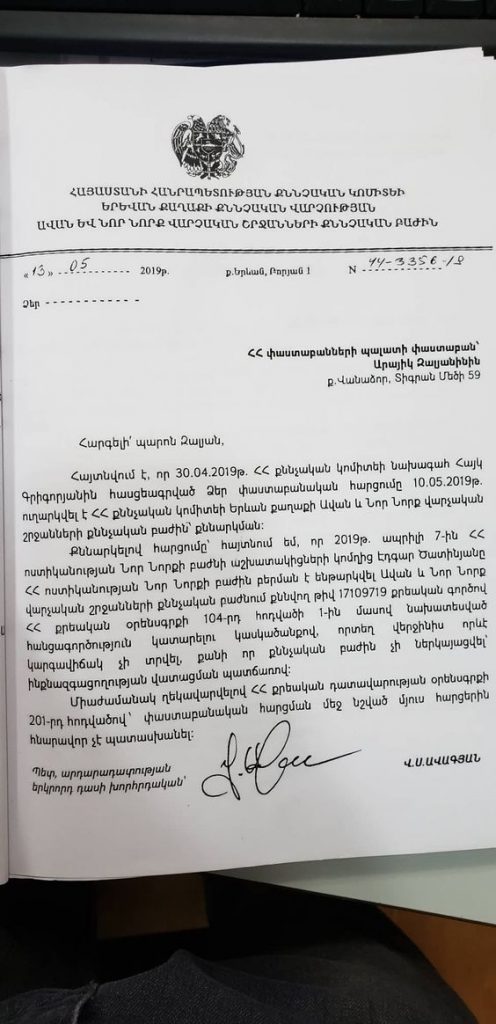 ՀԱՅԱՍՏԱՆԻ ՀԱՆՐԱՊԵՏՈՒԹՅԱՆ ՔՆՆՉԱԿԱՆ ԿՈՄԻՏԵԻ
ԵՐԵՎԱՆ ՔԱՂԱՔԻ ՔՆՆՉԱԿԱՆ ՎԱՐՉՈՒԹՅԱՆ
ԱՎԱՆ ԵՎ ՆՈՐ ՆՈՐՔ ՎԱՐՉԱԿԱՆ ՇՐՋԱՆՆԵՐԻ ՔՆՆՉԱԿԱՆ ԲԱԺԻՆ
«13» 05 2019թ. ք.Երևան, Բորյան 1 N 44-3356-19
Ձեր
ՀՀ փաստաբանների պալատի փաստաբան՝
Արայիկ Զալյանինին
ք.Վանաձոր, Տիգրան Մեծի 59
Հարգելի՛ պարոն Զալյան,
Հայտնվում է, որ 30.04.2019թ. ՀՀ քննչական կոմիտեի նախագահ Հայկ
Գրիգորյանին հասցեագրված Ձեր փաստաբանական հարցումը 10.05.2019թ.
ուղարկվել է ՀՀ քննչական կոմիտեի Երևան քաղաքի Ավան և Նոր Նորք վարչական
շրջանների քննչական բաժին՝ քննարկման:
Քննարկելով հարցումը՝ հայտնում եմ, որ 2019թ. ապրիլի 7-ին ՀՀ
ոստիկանության Նոր Նորքի բաժնի աշխատակիցների կողմից Էդգար Ծատինյանը
ՀՀ ոստիկանության Նոր Նորքի բաժին բերման է ենթարկվել Ավան և Նոր Նորք
վարչական շրջանների քննչական բաժնում քննվող թիվ 17109719 քրեական գործով
ՀՀ քրեական օրենսգրքի 104-րդ հոդվածի 1-ին մասով նախատեսված
հանցագործություն կատարելու կասկածանքով, որտեղ վերջինիս որևէ
կարգավիճակ չի տրվել, քանի որ քննչական բաժին չի ներկայացվել՝
ինքնազգացողության վատացման պատճառով:
Միաժամանակ ղեկավարվելով ՀՀ քրեական դատավարության օրենսգրքի
201-րդ հոդվածով՝ փաստաբանական հարցման մեջ նշված մյուս հարցերին
հնարավոր չէ պատասխանել:
Պետ, արդարադատության
երկրորդ դասի խորհրդական՝ Վ.Ս.ԱՎԱԳՅԱՆ